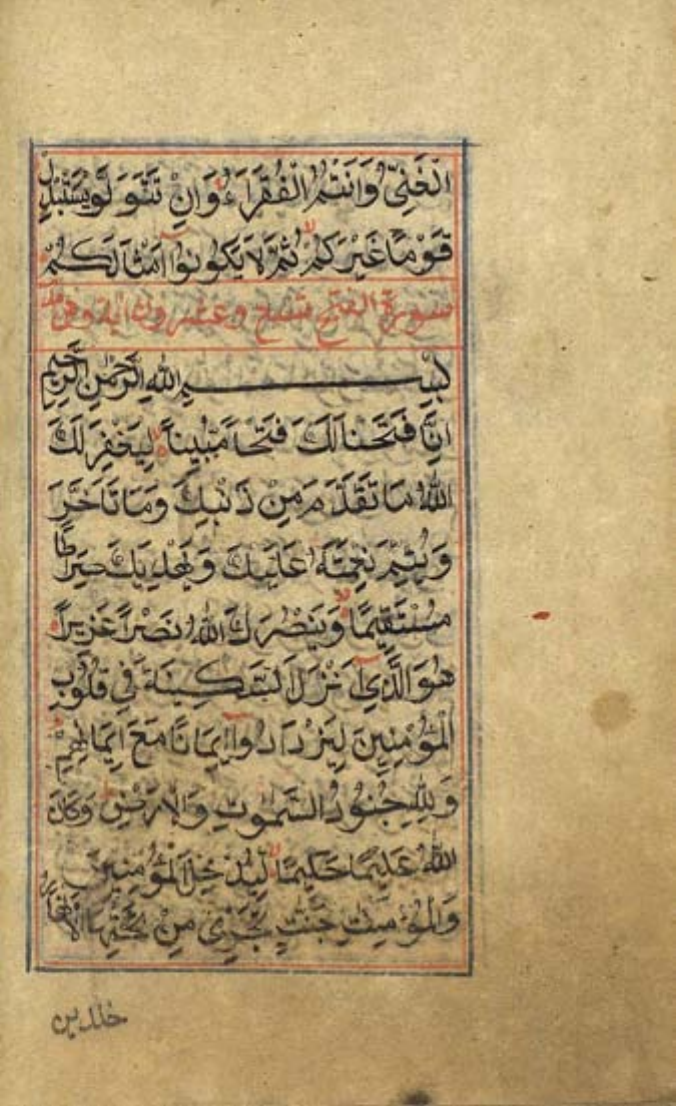 الْغَنِيُّ وَاَنْتُمُ الْفُقَرَاءُ وَاِنْ تَتَوَلَّوْا يَسْتَبْدِلْ
قَوْمًا غَيْرَكُمْ ثُمَّ لَا يَكُونُوا اَمْثَالَكُمْ
سورة الفتح تسع وعشرون اية وهي
بِسْمِ اللهِ الرَّحْمٰنِ الرَّحِيمِ
اِنَّا فَتَحْنَا لَكَ فَتْحًا مُبِينًا لِيَغْفِرَ لَكَ
اللهُ مَا تَقَدَّمَ مِنْ ذَنْبِكَ وَمَا تَاَخَّرَ
وَيُتِمَّ نِعْمَتَهُ عَلَيْكَ وَيَهْدِيَكَ صِرَاطًا
مُسْتَقِيمًا وَيَنْصُرَكَ اللهُ نَصْرًا عَزِيزًا
هُوَ الَّذِي اَنْزَلَ السَّكِينَةَ فِي قُلُوبِ
الْمُؤْمِنِينَ لِيَزْدَادُوا اِيمَانًا مَعَ اِيمَانِهِمْ
وَلِلّٰهِ جُنُودُ السَّمٰوٰتِ وَالْاَرْضِ وَكَانَ
اللهُ عَلِيمًا حَكِيمًا لِيُدْخِلَ الْمُؤْمِنِينَ
وَالْمُؤْمِنٰتِ جَنّٰتٍ تَجْرِي مِنْ تَحْتِهَا الْاَنْهَارُ
خٰلدين